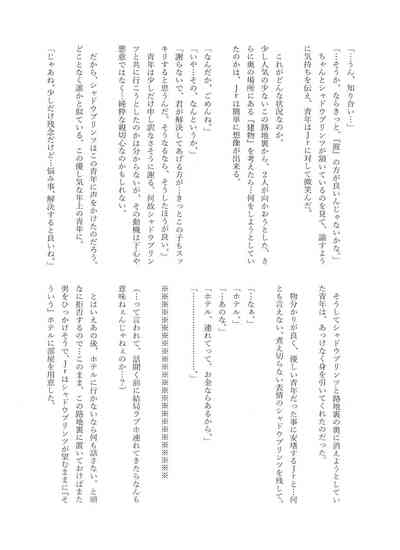 「…うん、知り合い…」
「…そうか。ならきっと、『彼』の方が良いんじゃないかな。」
　ちゃんとシャドウプリンツが頷いているのを見て、諭すよう
に気持ちを伝え、青年はＪｒに対して微笑んだ。
　これがどんな状況なのか。
　少し人気の少ないこの路地裏から、２人が向かおうとした、さ
らに奥の場所にある『建物』を考えたら…何をしようとしてい
たのかは、Ｊｒは簡単に想像が出来る。
「なんだか、ごめんね。」
「いや…その、なんというか。」
「謝らないで、君が解決してあげる方が…きっとこの子もスッ
キリすると思うんだ。そうなるなら、そうしたほうが良い。」
　青年は少しだけ申し訳なさそうに謝る。何故シャドウプリン
ツと共に行こうとしたのかは分からないが、その動機は下心や
悪意ではなく…純粋な親切心なのかもしれない。
　だから、シャドウプリンツはこの青年に声をかけたのだろう。
どことなく誰かと似ている。この優し気な年上の青年に。
「じゃあね。少しだけ残念だけど…悩み事、解決すると良いね。」
　そうしてシャドウプリンツと路地裏の奥に消えようとしてい
た青年は、あっけなく身を引いてくれたのだった。
　物分かりが良く、優しい青年だった事に安堵するＪｒと…何
とも言えない、煮え切らない表情のシャドウプリンツを残して。
「…なぁ。」
「ホテル。」
「…あのな。」
「ホテル、連れてって。お金ならあるから。」
「…………………。」
※※※※※※※※※※※※※※※※※※※※
（…って言われて、話聞く前に結局ラブホ連れてきたらなんも
意味ねぇんじゃねぇのか…？）
　とはいえあの後、ホテルに行かないなら何も話さない、と頑
なに拒否するので…このまま、この路地裏に置いておけばまた
男をひっかけそうで、Ｊｒはシャドウプリンツが望むままに『そ
ういう』ホテルに部屋を用意した。